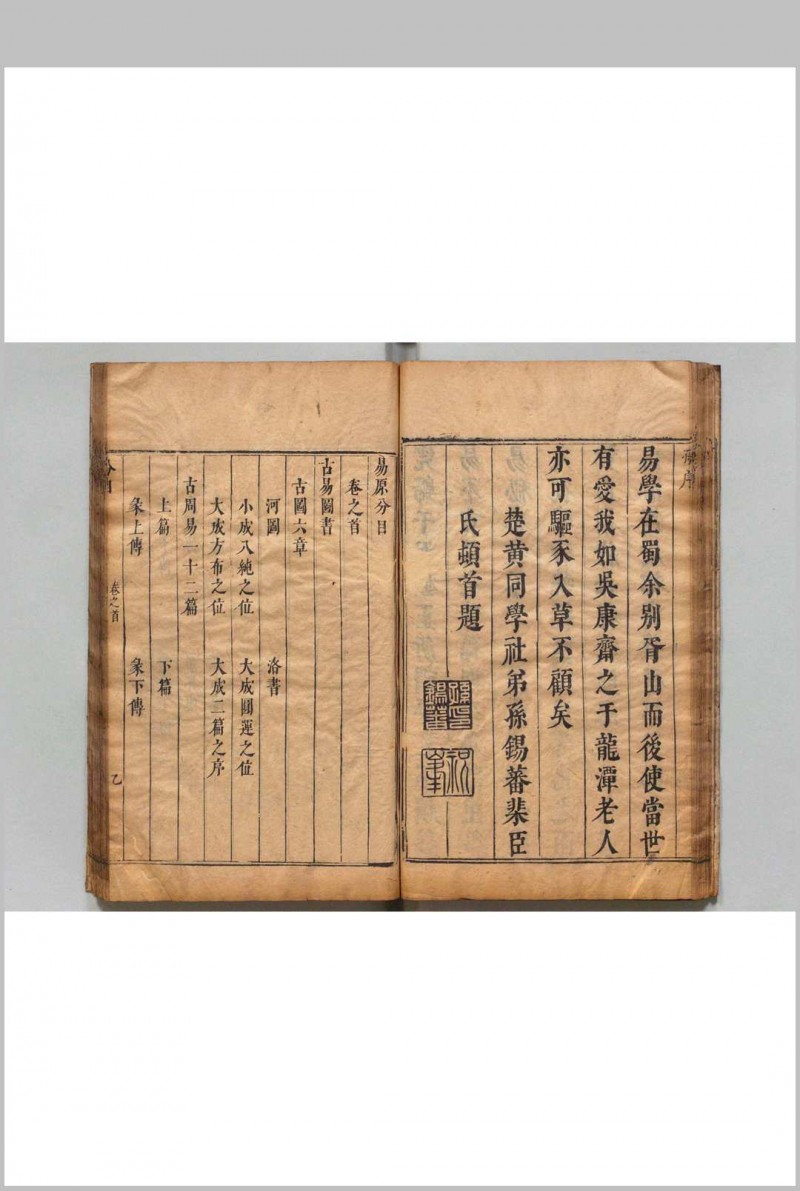 易學在蜀余別胥山而後使當世
有愛我如吳康齋之于龍潭老人
亦可驅豕入草不顧矣
楚黃同學社弟孫錫蕃棐臣
氏頓首題
易原分目
卷之首
古易圖書
古圖六章
河圖
洛書
小成八純之位
大成圓運之位
大成方布之位
大成二篇之序
古周易一十二篇
上篇
下篇
彖上傳
彖下傳
卷之首
乙